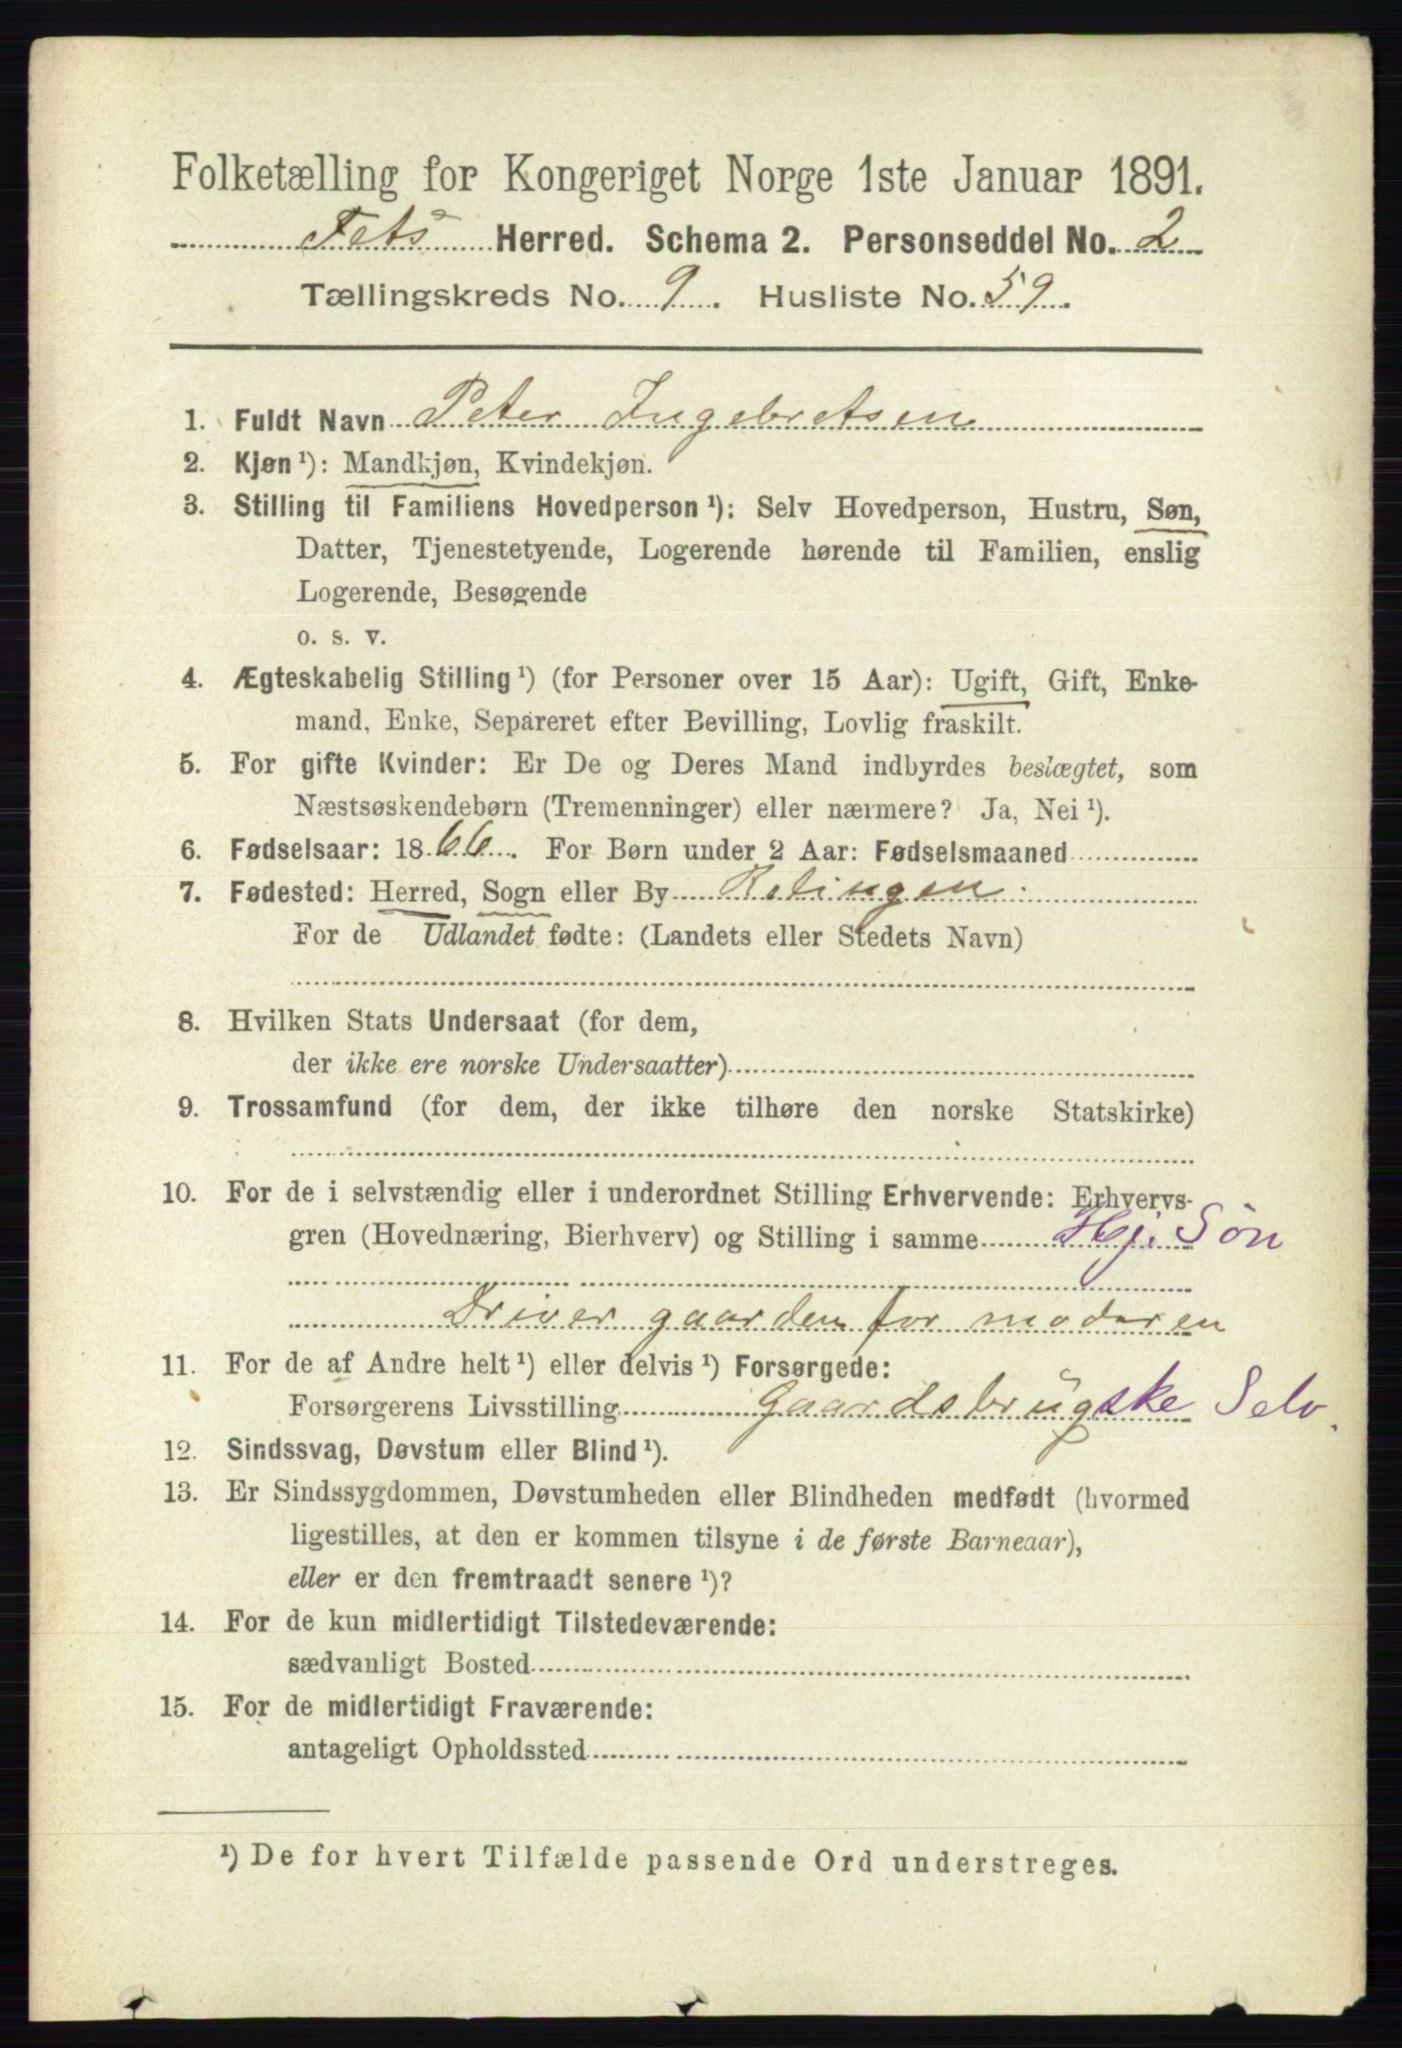 Folketælling for Kongeriget Norge 1ste Januar 1891.
Fets Herred. Schema 2. Personseddel No. 2
Tællingskreds No. 9. Husliste No. 59.
1. Fuldt Navn Peter Ingebretsen
2. Kjøn ¹): Mandkjøn, Kvindekjøn.
3. Stilling til Familiens Hovedperson ¹): Selv Hovedperson, Hustru, Søn,
Datter, Tjenestetyende, Logerende hørende til Familien, enslig
Logerende, Besøgende
o. s. v.
4. Ægteskabelig Stilling ¹) (for Personer over 15 Aar): Ugift, Gift, Enke-
mand, Enke, Separeret efter Bevilling, Lovlig fraskilt.
5. For gifte Kvinder: Er De og Deres Mand indbyrdes beslægtet, som
Næstsøskendebørn (Tremenninger) eller nærmere? Ja, Nei ¹).
6. Fødselsaar: 1866. For Børn under 2 Aar: Fødselsmaaned
7. Fødested: Herred, Sogn eller By
For de Udlandet fødte: (Landets eller Stedets Navn)
8. Hvilken Stats Undersaat (for dem,
der ikke ere norske Undersaatter)
9. Trossamfund (for dem, der ikke tilhøre den norske Statskirke)
10. For de i selvstændig eller i underordnet Stilling Erhvervende: Erhvervs-
gren (Hovednæring, Bierhverv) og Stilling i samme Hj. Søn
Driver gaarden for moderen
11. For de af Andre helt ¹) eller delvis ¹) Forsørgede:
Forsørgerens Livsstilling Gaardsbrugske Selv.
12. Sindssvag, Døvstum eller Blind ¹).
13. Er Sindssygdommen, Døvstumheden eller Blindheden medfødt (hvormed
ligestilles, at den er kommen tilsyne i de første Barneaar),
eller er den fremtraadt senere ¹)?
14. For de kun midlertidigt Tilstedeværende:
sædvanligt Bosted
15. For de midlertidigt Fraværende:
antageligt Opholdssted
¹) De for hvert Tilfælde passende Ord understreges.